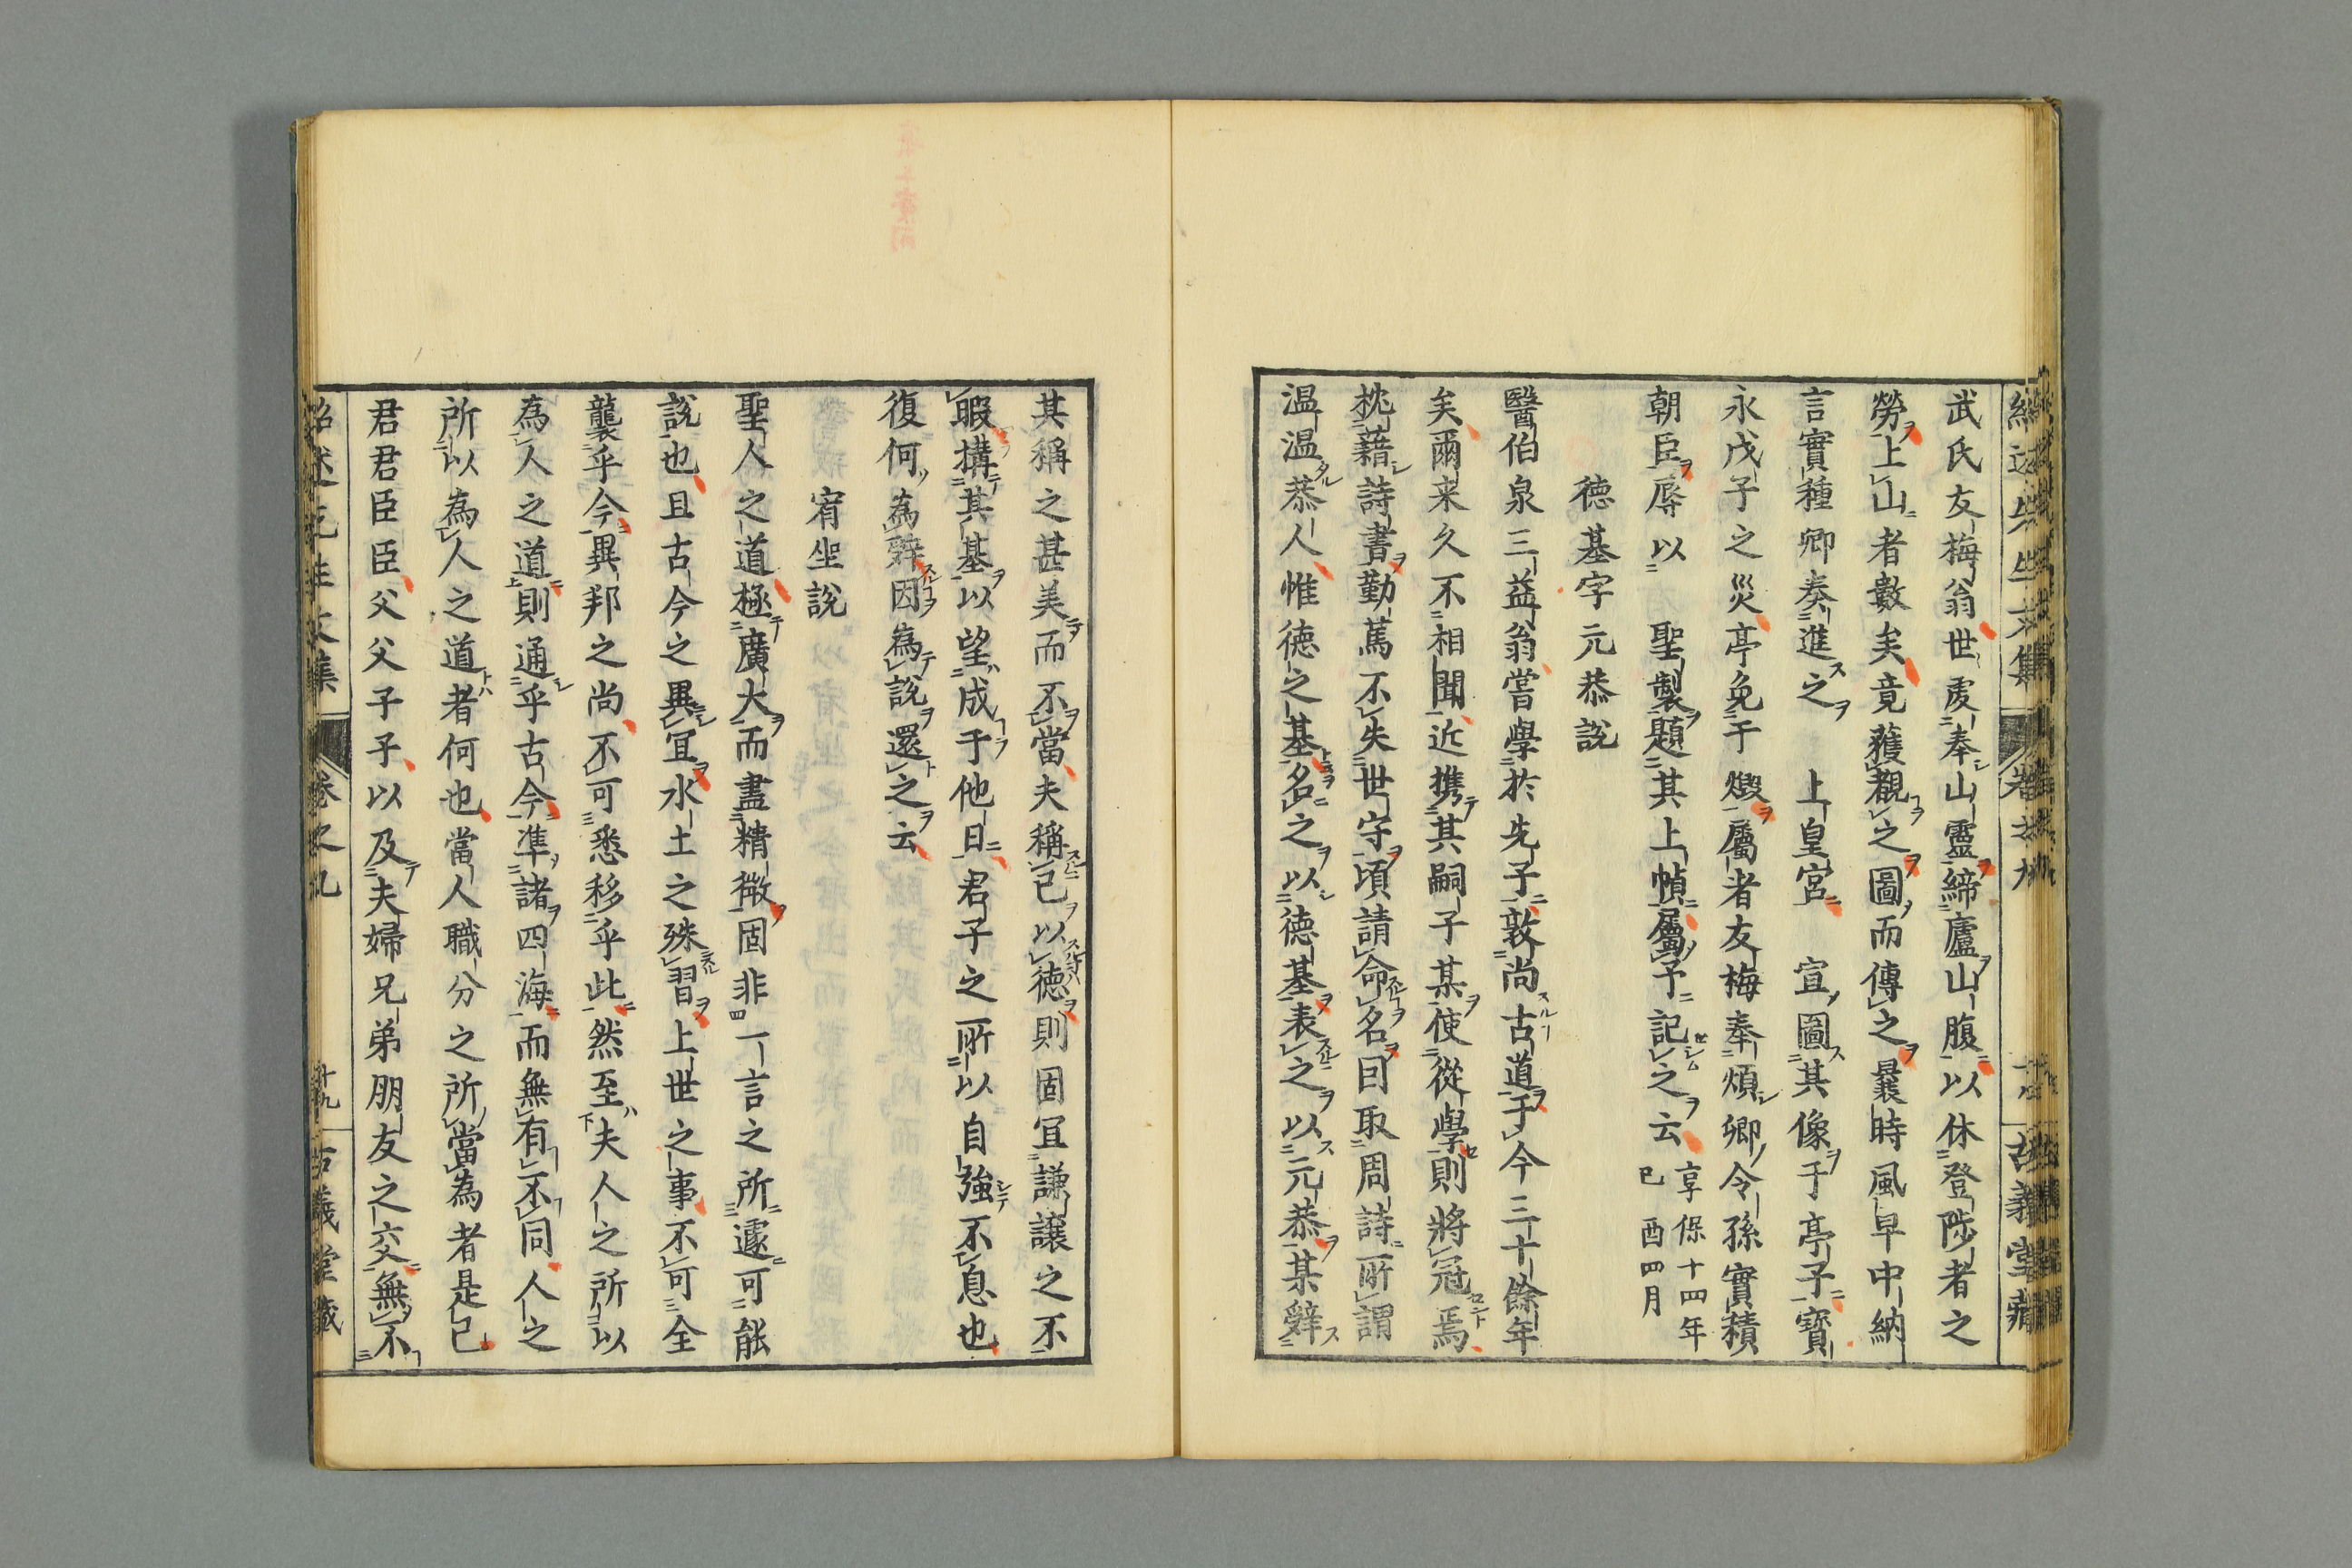 武氏友梅翁世處奉山靈締廬山腹以休登陟者之
勞上山者數矣竟獲觀之圖而傳之曩時風早中納
言實種卿奏進之　上皇宮　宣圖其像于亭子寳
永戊子之災亭免于燬屬者友梅奉煩卿令孫實積
朝臣辱以　聖製題其上幀屬予記之云享保十四年
己酉四月
徳基字元恭說
醫伯泉三益翁嘗學於先子敦尚古道于今三十餘年
矣爾来久不相聞近携其嗣子某使從學則將冠焉
枕藉詩書勤篤不失世守頃請命名曰取周詩所謂
温温恭人惟徳之基名之以徳基表之以元恭某辭
其稱之甚美而不當夫稱己以徳則固宜謙讓之不
暇搆其基以望成于他日君子之所以自強不息也
復何為辭因為說還之云
宥坐說
聖人之道極廣大而盡精微固非一言之所遽可能
說也且古今之異宜水土之殊習上世之事不可全
襲乎今異邦之尚不可悉移乎此然至夫人之所以
為人之道則通乎古今準諸四海而無有不同人之
所以為人之道者何也當人職分之所當為者是已
君君臣臣父父子子以及夫婦兄弟朋友之交無不
紹述先生文集　卷之九　十九　古義堂藏